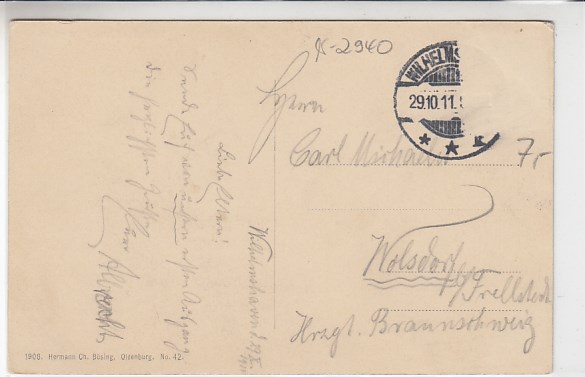 K-2940
WILHELMS
29.10.11.
Herrn
Carl Michaelis
7,-
Wolsdorf
b/ Frellstedt
Hrzgt. Braunschweig
Wilhelmshaven d. 29/X
Liebe Eltern!
Sende Euch von unserm ersten Ausgang
die herzlichsten Grüße
Euer Albrecht.
1908. Hermann Ch. Büsing, Oldenburg. No. 42.